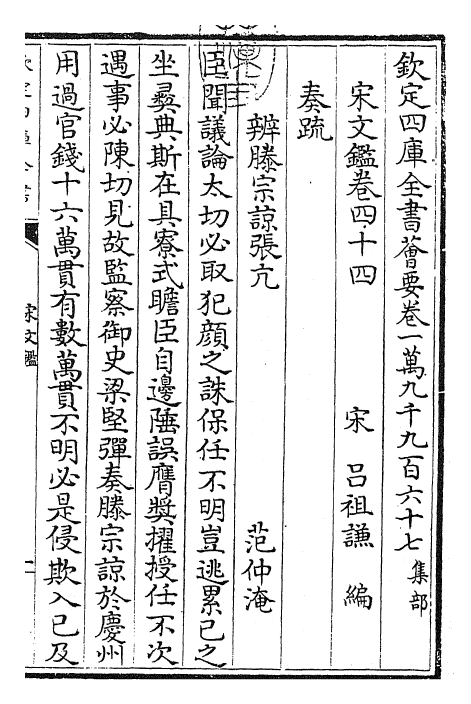 欽定四庫全書薈要卷一萬九千九百六十七 集部
宋文鑑卷四十四
宋 呂祖謙 編
奏疏
辨滕宗諒張亢
范仲淹
臣聞議論太切必取犯顏之誅保任不明豈逃累已之
坐彞典斯在具寮式瞻臣自邊陲誤膺奬擢授任不次
遇事必陳切見故監察御史梁堅彈奏滕宗諒於慶州
用過官錢十六萬貫有數萬貫不明必是侵欺入已及
宋文鑑